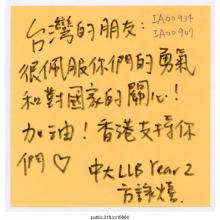 台灣的朋友：
IA00934
IA00907
很佩服你們的勇氣
和對國家的關心！
加油！香港支持你
們♡
中大 LLB Year 2
方詠熺
public.318.io/10964